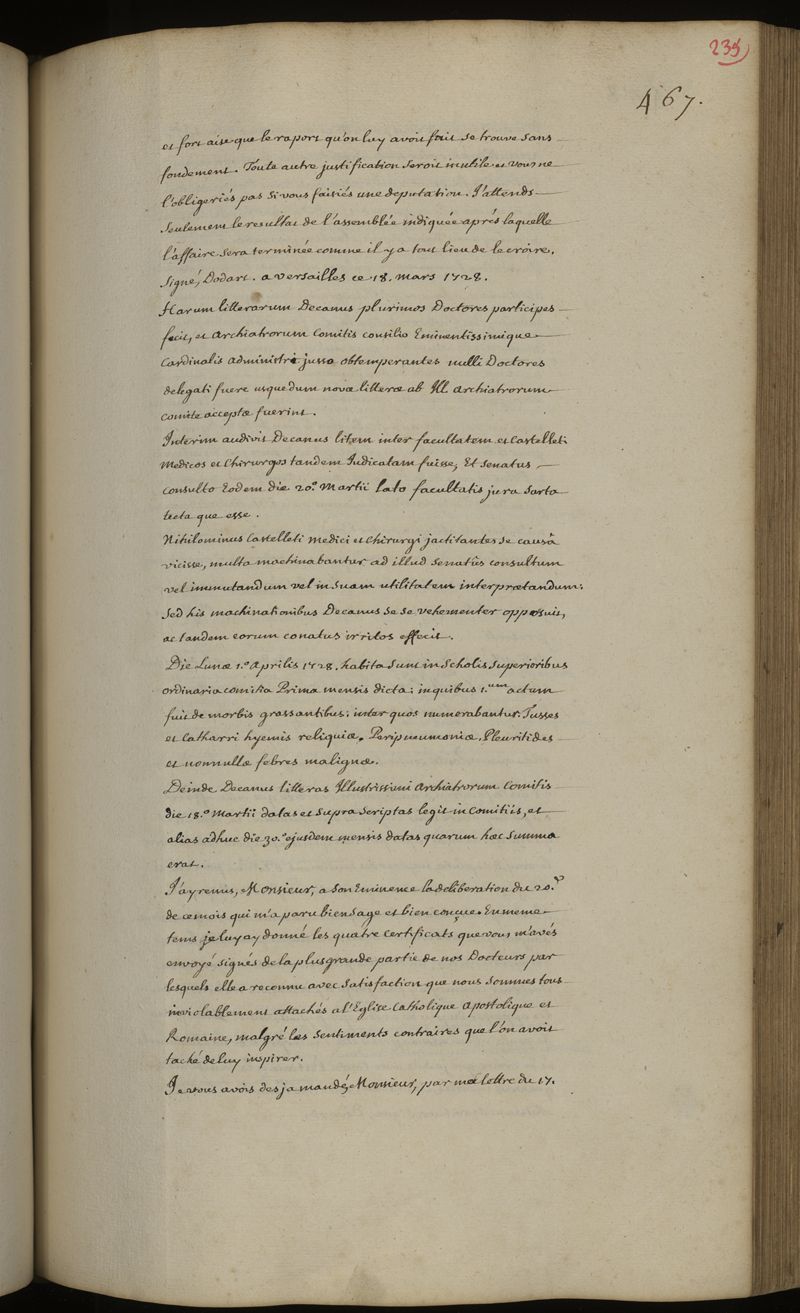 235
467.
et fort aise que le raport qu'on luy avoit fait se trouve sans
fondement. Toute autre justification seroit inutile et vous ne
l'obligeriés pas si vous faisiés une deputation. J'attends
seulement le resultat de l'assemblée indiquée aprés laquelle
l'affaire sera terminée comme il y a tout lieu de le croire.
Signé, Dodart. a Versailles ce 18. Mars 1728.
Harum litterarum Decanus plurimos Doctores participes
fecit, et Archiatrorum Comitis consilio Eminentissimique
Cardinalis administri jusso obtemperantes nulli Doctores
delegati fuere usquedum novæ litteræ ab Ill. Archiatrorum
comite acceptæ fuerint.
Interim audivit Decanus litem inter facultatem et Castelleti
Medicos et Chirurgos tandem Judicatam fuisse, Et Senatus
consulto Eodem die 20.º Martii lato facultatis jura sarta
tecta que esse.
Nihilominus Castelleti Medici et Chirurgi jactitantes se causâ
vicisse, multa machinabantur ad illud Senatûs consultum
vel immutandum vel in suam utilitatem interprætandum.
Sed his machinationibus Decanus se se vehementer opposuit,
ac tandem eorum conatus irritos effecit.
Die Lunæ 1.º Aprilis 1728. habita sunt in Scholis Superioribus
ordinaria comitia Prima mensis dicta; in quibus 1.um actum
fuit de morbis grassantibus; inter quos numerabantur. Tusses
et Catharri hyemis reliquiæ. Peripneumoniæ. Pleuritides
et nonnullæ febres malignæ.
Deinde Decanus litteras Illustrissimi Archiatrorum Comitis
die 18.º Martii datas et supra scriptas legit in Comitiis, et
alias adhuc die 30.º ejusdem mensis datas quarum hæc summa
erat.
J'ay remis, Monsieur, a son Eminence la deliberation du 20.e
de ce mois qui m'a paru bien sage et bien conçue. En meme
tems je luy ay donné les quatre certificats que vous m'avés
envoyé signés de la plus grande partie de nos Docteurs par
lesquels elle a reconnu avec satisfaction que nous sommes tous
inviolablement attachés a l'Eglise Catholique Apostolique et
Romaine, malgré les sentiments contraires que l'on avoit
taché de luy inspirer.
Je vous avois des ja mandé, Monsieur, par ma lettre du 17.